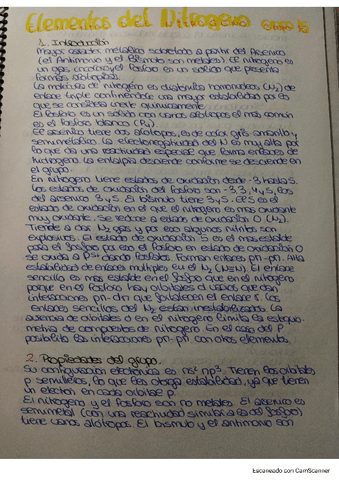 Elementos del Nitrogeno Grupo 15
1. Introducción
Mayor carácter metálico sobretodo a partir del Arsenico
(el Antimonio y el Bismuto son metales). El nitrógeno es
un gas incoloro y el fósforo es un sólido que presenta
formas alotrópicas.
La molécula de nitrógeno es diatómica homonuclear (N₂) de
enlace triple confiriendole una mayor estabilidad por lo
que se considera inerte químicamente.
El fósforo es un sólido con varios alótropos el más común
es el fósforo blanco (P₄)
El arsenico tiene dos alótropos, es de color gris-amarillo y
semimetálico. La electronegatividad del N es muy alta por
lo que da una reactividad especial que forma enlaces de
hidrogeno. La entalpia desciende conforme se desciende en
el grupo.
En nitrógeno tiene estados de oxidación desde -3 hasta 5.
Los estados de oxidación del fósforo son -3,3,4 y 5, los
del arsenico 3 y 5. El bismuto tiene 3 y 5. El 5 es el
estado de oxidación en el que el nitrogeno es mas oxidante
muy oxidante. Se reduce a estado de oxidación 0 (N₂).
Tiende a dar N₂ gas y por eso algunos nitritos son
explosivos. El estado de oxidación 5 es el mas estable
para el fósforo ya con el fósforo en estado de oxidación 0
se oxida a P⁵⁺ dando fosfatos. Forman enlaces pπ-pπ. Alta
estabilidad de enlaces multiples en el N₂ (N≡N). El enlace
sencillo es mas estable en el fósforo que en el nitrógeno
porque en el fósforo hay orbitales d vacios que dan
interacciones pπ-dπ que fortalecen el enlace δ. Los
enlaces sencillos del N₂ estan inestabilizados. La
ausencia de orbitales d en el nitrógeno limita la estequio-
metria de compuestos de nitrógeno. En el caso del P
posibilita las interacciones pπ-pπ con otros elementos.
2. Propiedades del grupo.
Su configuración electronica es ns² np³. Tienen los orbitales
p semillenos, lo que les otorga estabilidad, ya que tienen
un electron en cada orbital p
El nitrógeno y el fósforo son no metales. El arsenico es
semimetal (con una reactividad similar a la del fósforo)
tiene varios alótropos. El bismuto y el antimonio son
Escaneado con CamScanner